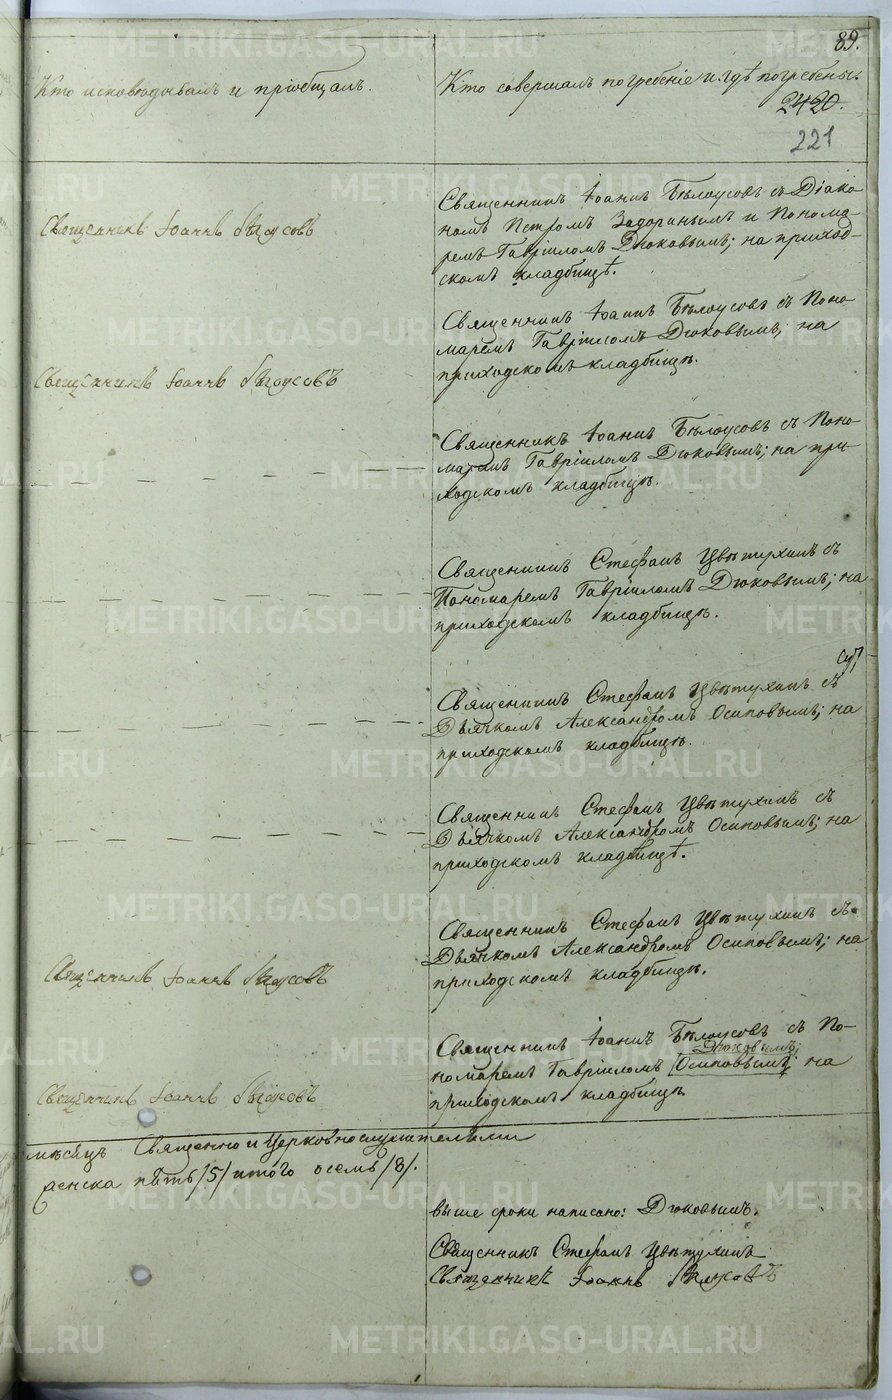 89.
Кто исповѣдывалъ и пріобщалъ.
Кто совершалъ погребеніе и гдѣ погребены.
2420.
221
Священникъ Іоаннъ Бѣлоусовъ съ Діако-
номъ Петромъ Задоринымъ и Понома-
ремъ Гавріиломъ Дюковымъ; на приход-
скомъ кладбищѣ.
Священникъ Іоаннъ Бѣлоусовъ
Священникъ Іоаннъ Бѣлоусовъ съ Поно-
маремъ Гавріиломъ Дюковымъ; на
приходскомъ кладбищѣ.
Священникъ Іоаннъ Бѣлоусовъ
Священникъ Іоаннъ Бѣлоусовъ съ Поно-
маремъ Гавріиломъ Дюковымъ; на при-
ходскомъ кладбищѣ.
Священникъ Стефанъ Цвѣтухинъ съ
Пономаремъ Гавріиломъ Дюковымъ; на
приходскомъ кладбищѣ.
Священникъ Стефанъ Цвѣтухинъ съ
Дьячкомъ Александромъ Осиповымъ; на
приходскомъ кладбищѣ.
Священникъ Стефанъ Цвѣтухинъ съ
Дьячкомъ Александромъ Осиповымъ; на
приходскомъ кладбищѣ.
Священникъ Стефанъ Цвѣтухинъ съ
Дьячкомъ Александромъ Осиповымъ; на
приходскомъ кладбищѣ.
Священникъ Іоаннъ Бѣлоусовъ
Священникъ Іоаннъ Бѣлоусовъ съ По-
Дюковымъ;
номаремъ Гавріиломъ Осиповымъ; на
приходскомъ кладбищѣ
Священникъ Іоаннъ Бѣлоусовъ
мѣсяцъ Священно и Церковнослужителями
женска пять /5/ итого осемь /8/.
выше строки написано: Дюковымъ.
Священникъ Стефанъ Цвѣтухинъ
Священникъ Іоаннъ Бѣлоусовъ
METRIKI.GASO-URAL.RU